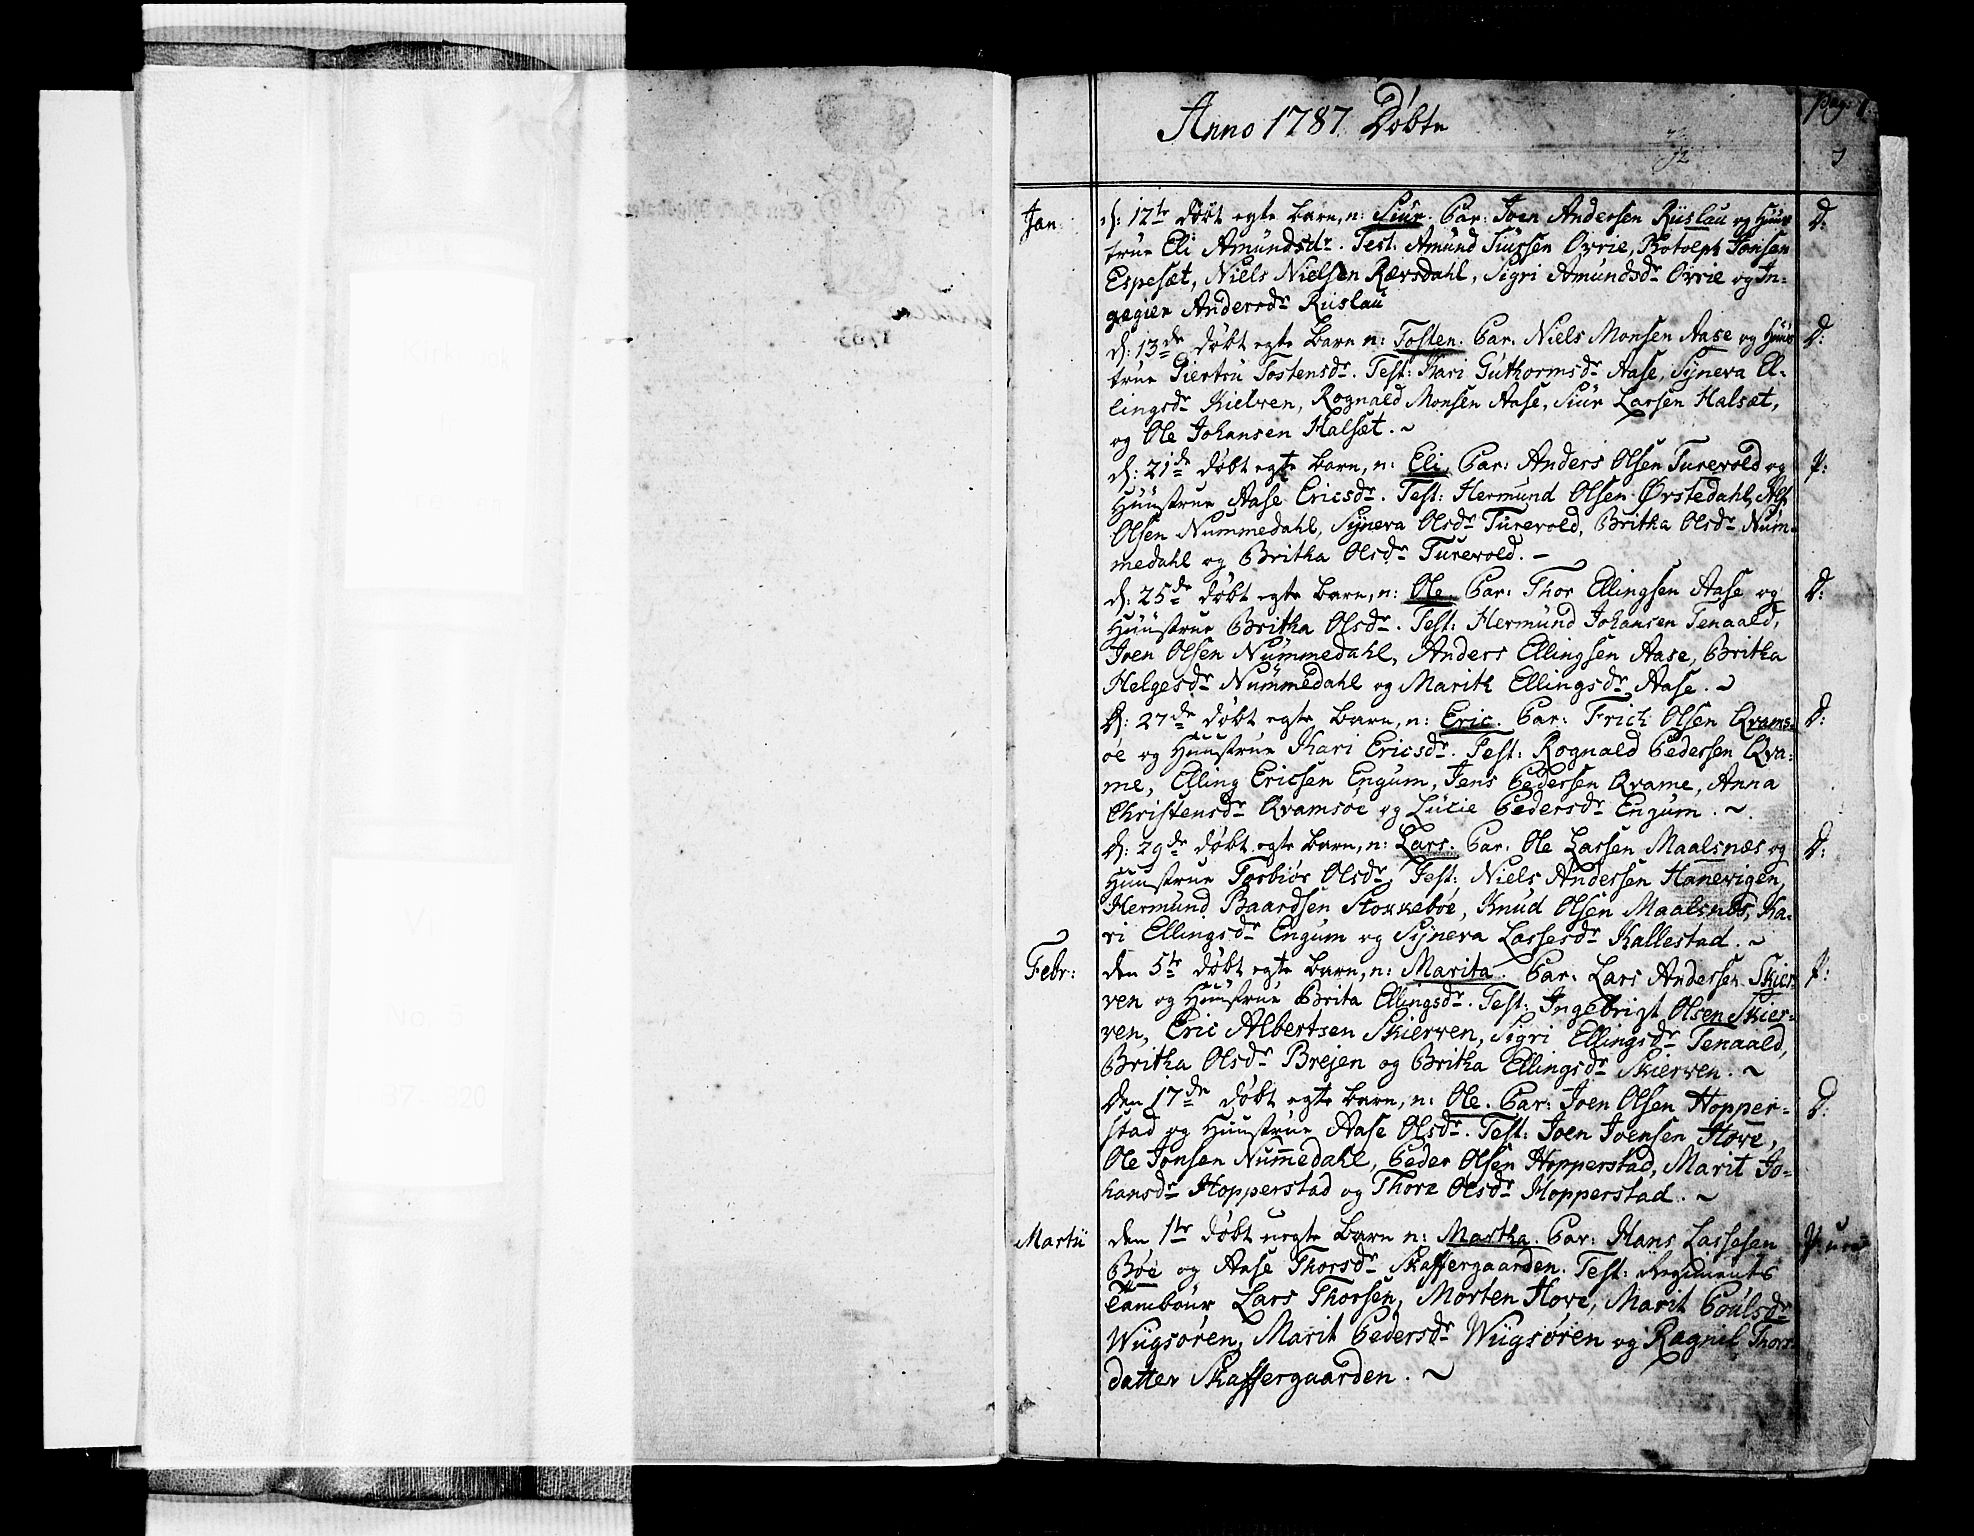 pag: 1
Anno 1787 Døbte
Jan:
d: 12te døbt egte barn, n: Siur. Par: Joen Andersen Riislau og Huus
true Eli Amundsdr. Test: Amund Siursen Ovrie, Botolph Jonsen
Espesæt, Niels Nielsen Rævsdahl, Sigri Amundsdr Ovrie og In-
gegier Andersdr Riislau
D:
d: 13de døbt egte barn n: Tosten. Par. Niels Monsen Aase og Huus
true Giertru Tostensdr. Test: Kari Guthormsdr Aase, Syneva El-
lingsdr Kielven, Rognald Monsen Aase, Siur Larsen Halsæt,
og Ole Johansen Halsæt. ~
D:
d: 21de døbt egte barn, n: Eli. Par: Anders Olsen Turevold og
Huustrue Aase Ericsdr. Test: Hermund Olsen Ørstedahl, Alf
Olsen Nummedahl, Syneva Olsdr Turevold, Britha Olsdr Num-
medahl og Britha Olsdr Turevold. -
P:
d: 25de døbt egte barn, n: Ole. Par: Thor Ellingsen Aase og
Huustrue Britha Olsdr. Test: Hermund Johansen Tenaald,
Joen Olsen Nummedahl, Anders Ellingsen Aase, Britha
Helgesdr Nummedahl og Marith Ellingsdr Aase. ~
D:
d: 27de døbt egte barn, n: Eric. Par: Frich Olsen Qvams-
øe og Huustrue Kari Ericsdr. Test: Rognald Pedersen Qva-
me, Elling Ericsen Engum, Jens Pedersen Qvame, Anna
Christensdr Qvamsøe og Lucie Pedersdr Engum. ~
D:
d: 29de døbt egte barn, n: Lars. Par. Ole Larsen Maalsnæs og
Huustrue Torbiør Olsdr. Test: Niels Andersen Hanevigen,
Hermund Baardsen Stokkebøe, Knud Olsen Maalsnæs, Ka-
ri Ellingsdr Engum og Syneva Lassesdr Kallestad. ~
D:
Febr:
den 5te døbt egte barn, n: Marita. Par. Lars Andersen Skier-
ven og Huustrue Brita Ellingsdr. Test: Ingebrigt Olsen Skier-
ven, Eric Albertsen Skierven, Sigri Ellingsdr Tenaald,
Britha Olsdr Brejen og Britha Ellingsdr Skierven. ~
P:
den 17de døbt egte barn, n: Ole. Par: Joen Olsen Hopper-
stad og Huustrue Aase Olsdr. Test: Joen Joensen Hove,
Ole Jonsen Nummedahl, Peder Olsen Hopperstad, Marit Jo-
hansdr Hopperstad og Thore Olsdr Hopperstad. ~
D:
Martii
den 1te døbt uegte barn n: Martha. Par: Hans Lassesen
Bøe og Aase Thorsdr Skaffergaarden. Test: Regiments
Tambour Lars Thorsen, Morten Hove, Marit Poulsdr
Wiigsøren, Marit Pedersdr Wiigsøren og Ragnil Thors-
datter Skaffergaarden. ~